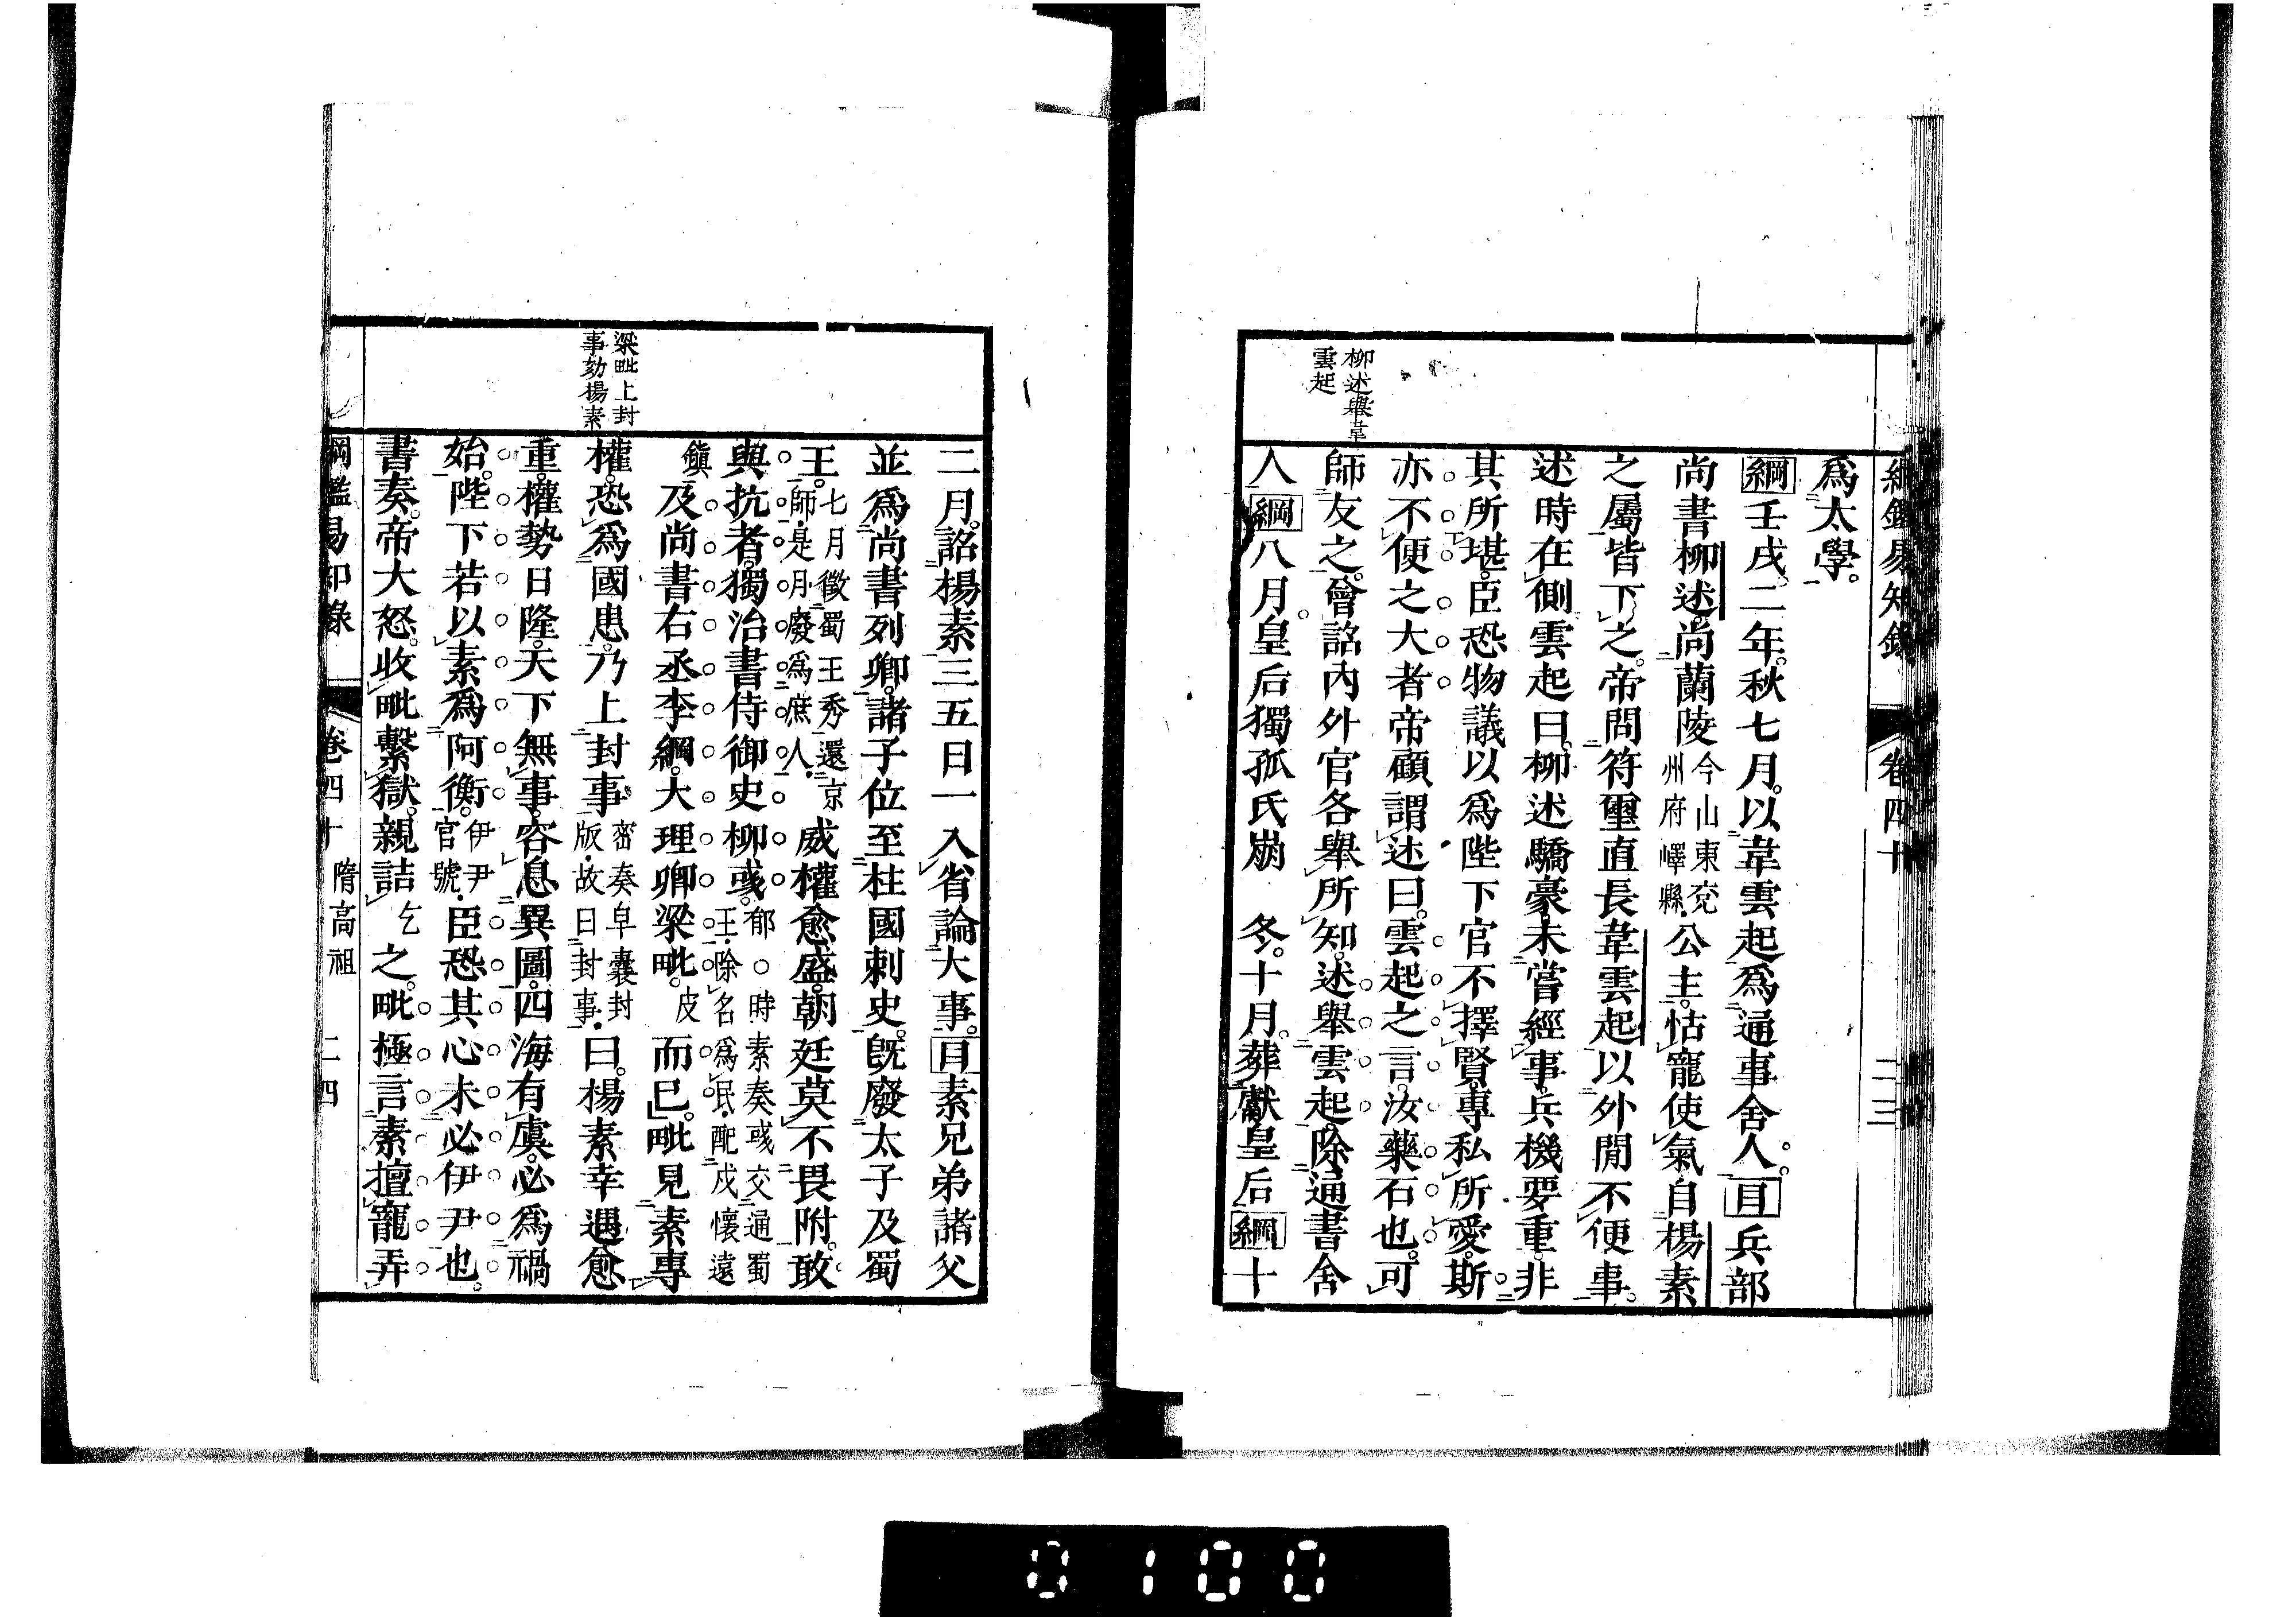 綱鑑易知錄 卷四十 二三
柳述舉韋
雲起
爲太學。
綱壬戌。二年。秋七月。以韋雲起爲通事舍人。目兵部
尚書柳述。尚蘭陵今山東兗州府嶧縣公主。怙寵使氣。自楊素
之屬皆下之。帝問符璽直長韋雲起以外閒不便事。
述時在側。雲起曰。柳述驕豪。未嘗經事。兵機要重。非
其所堪。臣恐物議以爲陛下官不擇賢。專私所愛。斯
亦不便之大者。帝顧謂述曰。雲起之言。汝藥石也。可
師友之。會詔內外官各舉所知。述舉雲起。除通書舍
人綱八月。皇后獨孤氏崩 冬。十月。葬獻皇后綱十
二月。詔楊素三五日一入省論大事。目素兄弟諸父
並爲尚書列卿。諸子位至柱國刺史。旣廢太子及蜀
王。七月徵蜀王秀還京師是月廢爲庶人威權愈盛。朝廷莫不畏附。敢
與抗者。獨治書侍御史柳彧。郁○時素奏彧交通蜀王除名爲民配戍懷遠
鎮及尚書右丞李綱。大理卿梁毗。皮而已。毗見素專
權。恐爲國患。乃上封事密奏皁囊封版故曰封事曰。楊素幸遇愈
重。權勢日隆。天下無事。容息異圖。四海有虞。必爲禍
始。陛下若以素爲阿衡。伊尹官號臣恐其心未必伊尹也。
書奏。帝大怒。收毗繫獄。親詰乞之。毗極言素擅寵弄
梁毗上封
事劾楊素
綱鑑易知錄 卷四十 隋高祖 二四
0100